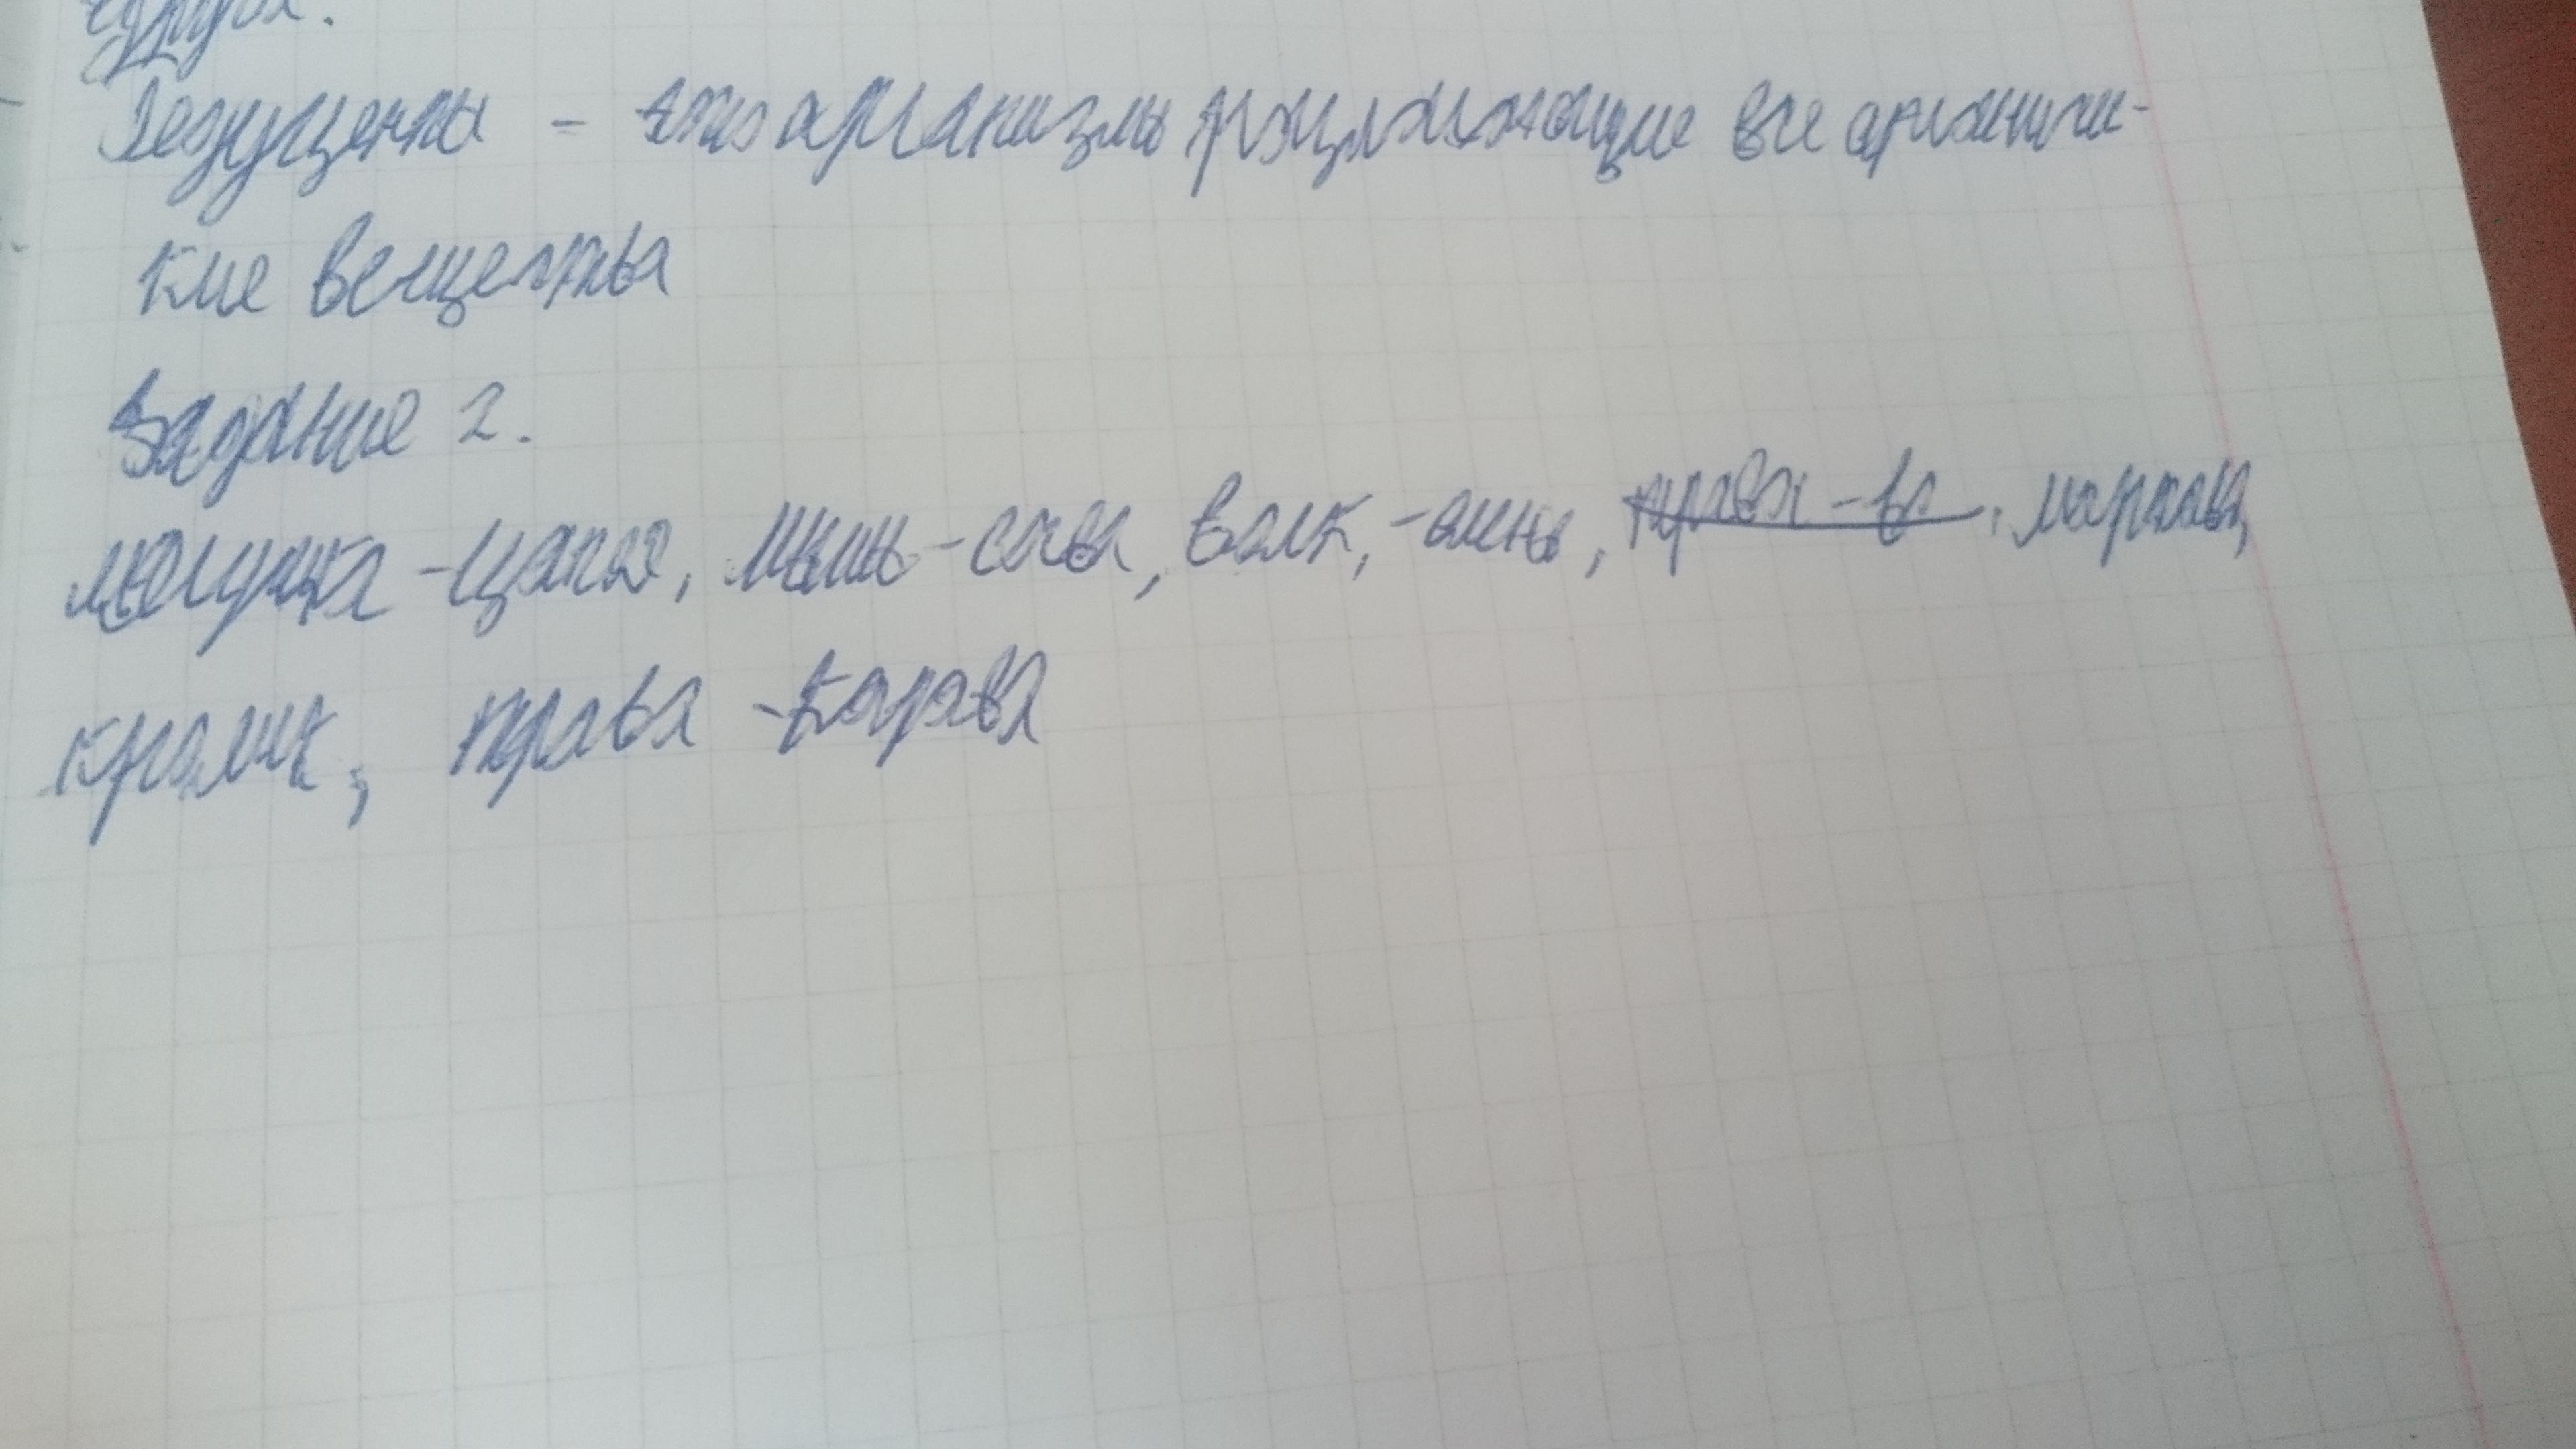 Редуценты - это организмы разлагающие все органичес-
кие вещества
Задание 2.
лягушка - цапля, мышь - сова, волк, - олень, морковь,
кролик, трава - корова